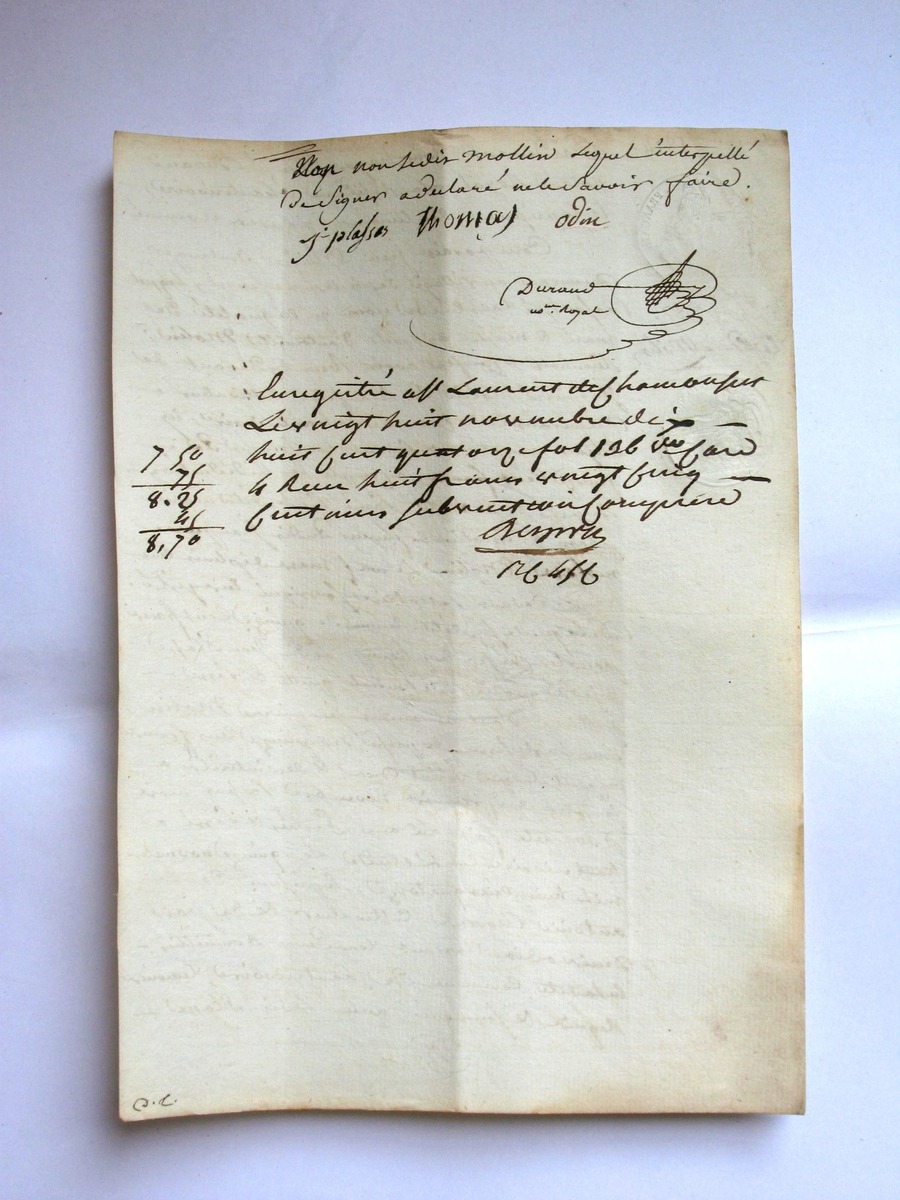 non ledit mollin lequel interpellé
de signer a declaré ne le savoir faire.
j. plasse Thomas odin
Durand
no.re Royal
Enregistré a St Laurent de Chamousset
Le vingt huit novembre dix
huit cent quatorze fol 126 v.o Case
4 Reçu huit francs vingt cinq
Centimes subvention Comprise
7 50
75
8.25
45
8,70
D.C.